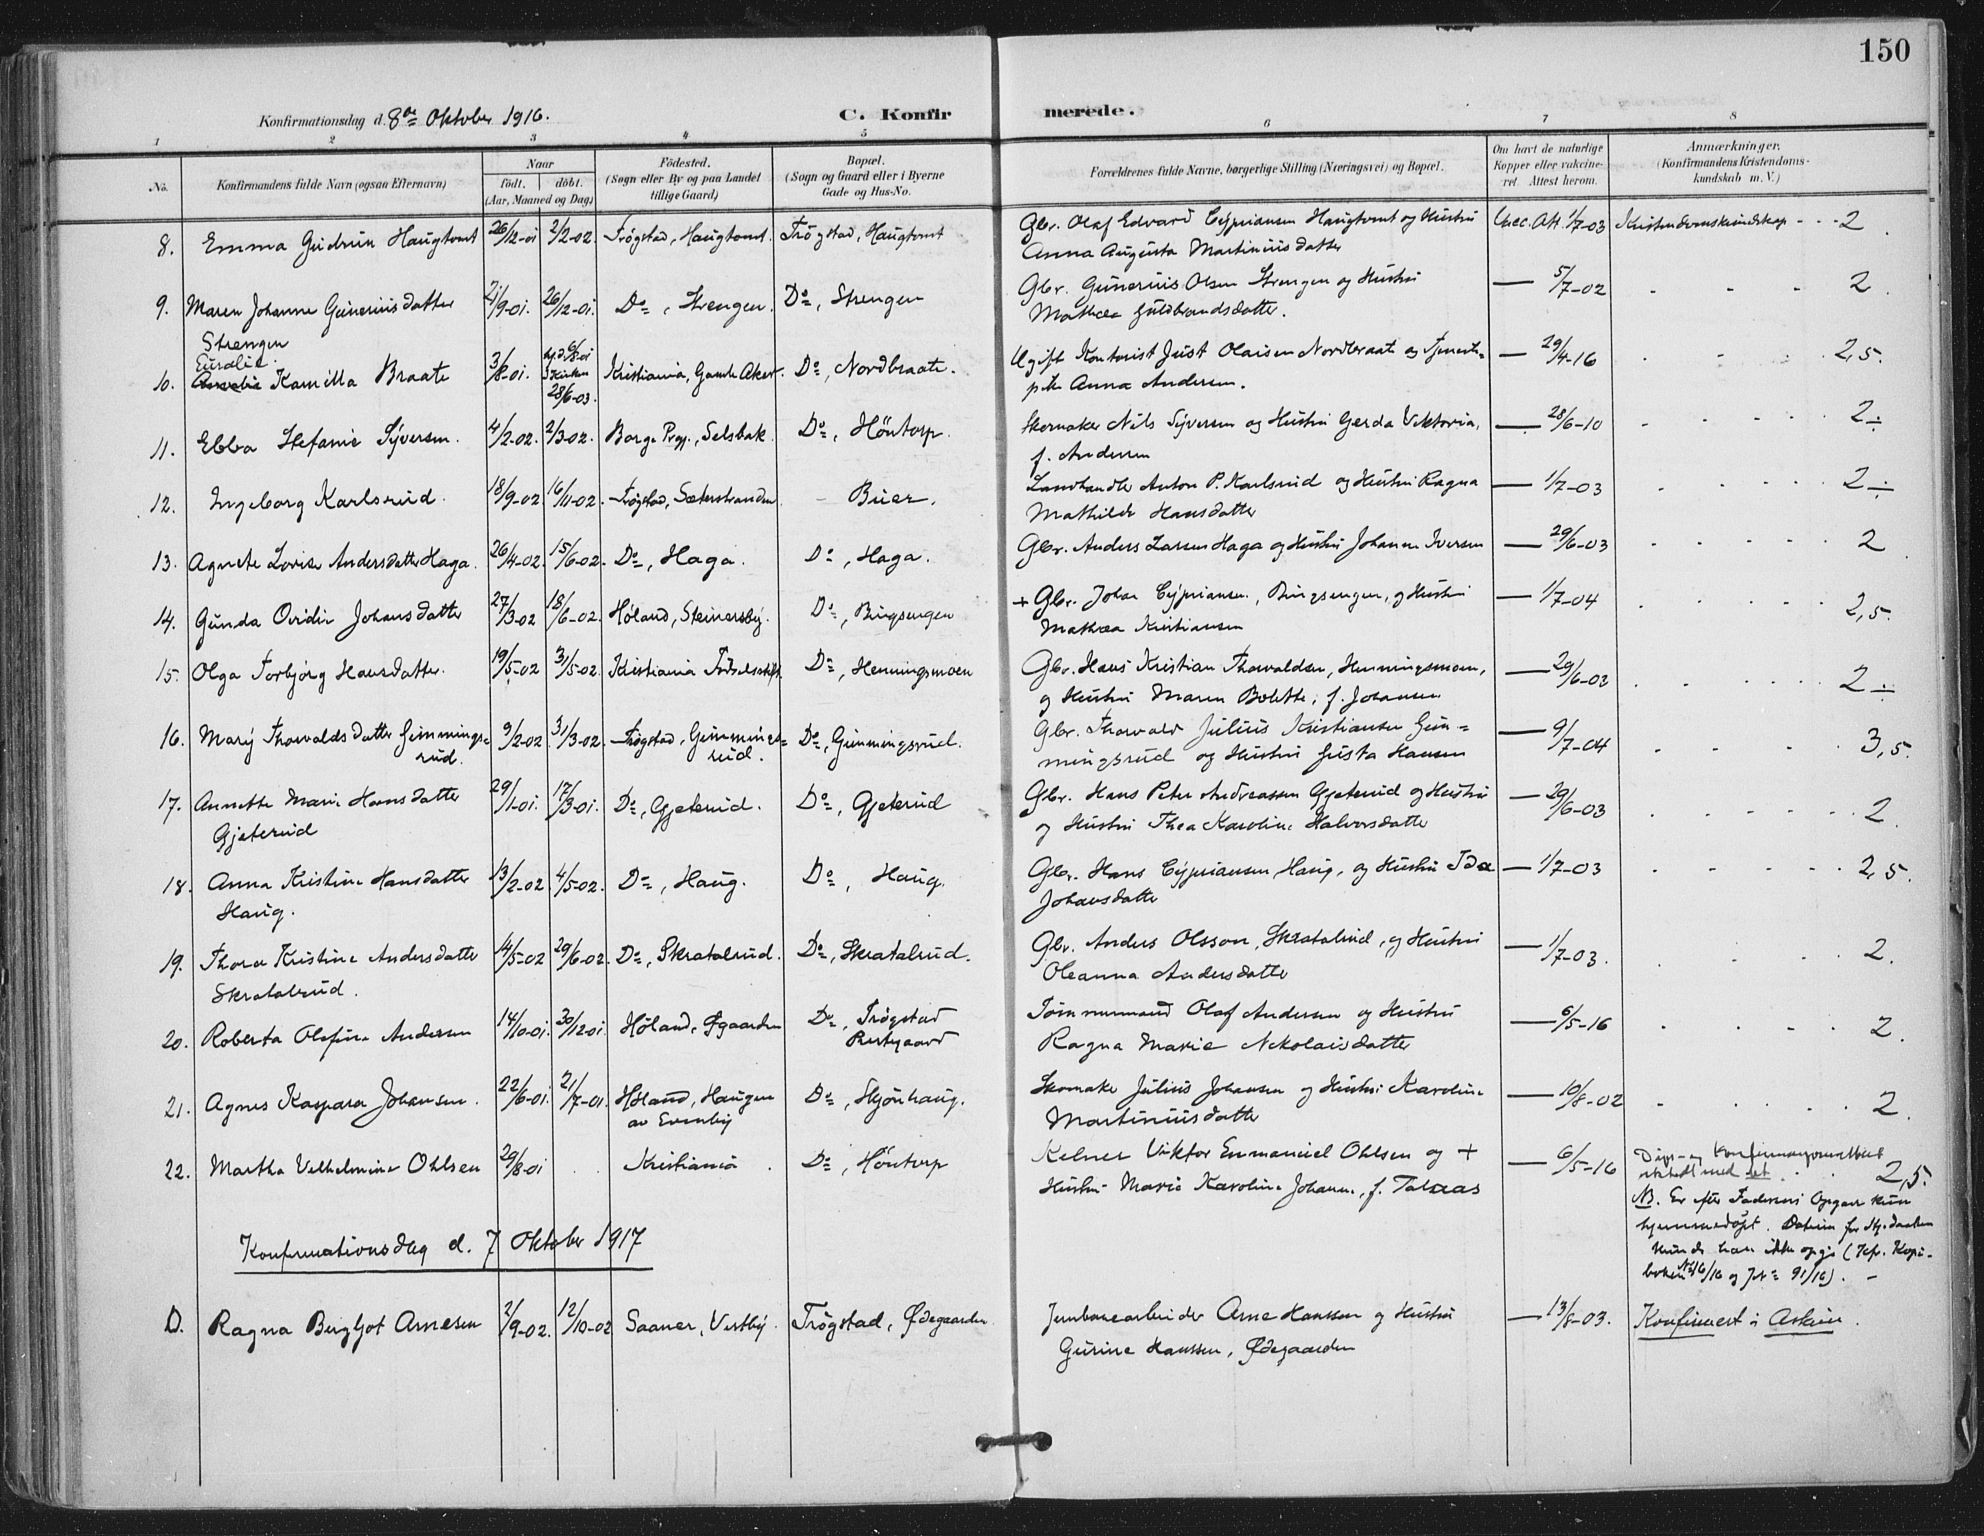 150
Konfirmationsdag d. 8de Oktober 1916.
C. Konfir
merede.
1 2 3 4 5 6 7 8
No.
Konfirmandens fulde Navn (ogsaa Efternavn)
Naar
födt. döbt.
(Aar, Maaned og Dag)
Födested.
(Sogn eller By og paa Landet
tillige Gaard)
Bopæl.
(Sogn og Gaard eller i Byerne
Gade og Hus-No.
Forældrenes fulde Navne, borgerlige Stilling (Næringsvei) og Bopæl.
Om havt de naturlige
Kopper eller vakcine-
ret. Attest herom.
Anmærkninger.
(Konfirmandens Kristendoms-
kundskab m. V.)
8. Emma Gudrun Haugtomt 26/12-01 2/2-02. Trögstad, Haugtomt. Trögstad, Haugtomt Gbr. Olaf Edvard Cypriansen Haugtomt og Hustru Vacc. Att. 1/7-03 Kristendomskundskap - - - 2.
Anna Augusta Martiniusdatter
9. Maren Johanne Guneriusdatter 21/9-01. 26/12-01. Do, Strengen. Do, Strengen Gbr. Gunerius Olsen Strengen og Hustru — 5/7-02 2.
Strengen Mathea Guldbrandsdatter.
Euralie
10. Kamilla Braate 3/8-01. hjd. 6/8-01 i Kirken 28/6-03. Kristiania, Gamle Aker. Do, Nordbraate. Ugift Kontorist Just Olaisen Nordbraate og Tjeneste- — 29/4-16 2,5.
pike Anna Andersen.
11. Ebba Stefanie Syversen. 4/2-02. 2/3-02. Borge Prgj., Selsbak. Do, Höntorp. Skomaker Nils Syversen og Hustru Gerda Viktoria, — 28/6-10 2÷
f. Andersen
12. Ingeborg Karlsrud. 18/9-02 16/11-02. Trögstad, Sæterstranden - Buer. Landhandler Anton P. Karlsrud og Hustru Ragna — 1/7-03 2÷
Mathilde Hansdatter
13. Agnete Lovise Andersdatter Haga. 26/4-02. 15/6-02. Do, Haga. Do, Haga. Gbr. Anders Larsen Haga og Hustru Johanne Iversen — 29/6-03 2
14. Gunda Ovidie Johansdatter 27/3-02 18/6-02. Höland, Steinersby. Do, Bingsengen + Gbr. Johan Cypriansen, Bingsengen, og Hustru — 1/7-04 2,5.
Mathea Kristiansen
15. Olga Torbjörg Hansdatter. 19/5-02 31/5-02. Kristiania Födselsstift. Do, Henningsmoen Gbr. Hans Kristian Thorvaldsen, Henningsmoen, — 29/6-03 2÷
og Hustru Maren Bolette, f. Johansen
16. Mary Thorvaldsdatter Gimmings= 9/2-02 31/3-02. Trögstad, Gimmings= Do, Gimmingsrud. Gbr. Thorvald Julius Kristiansen Gim= — 9/7-04 3,5.
rud. rud. mingsrud og Hustru Gusta Hansen
17. Annette Marie Hansdatter 29/1-01. 17/3-01. Do, Gjeterud. Do, Gjeterud Gbr. Hans Peter Andreassen Gjeterud og Hustru — 29/6-03 2.
Gjeterud og Hustru Thea Karoline Halvorsdatter
18. Anna Kristine Hansdatter 13/2-02 4/5-02. Do, Haug. Do, Haug. Gbr. Hans Cypriansen, Haug, og Hustru Ida — 1/7-03 2,5.
Haug. Johansdatter
19. Thora Kristine Andersdatter 14/5-02 29/6-02. Do, Skratalrud. Do, Skratalrud. Gbr. Anders Olsson, Skratalrud, og Hustru — 1/7-03. 2.
Skratalrud. Oleanna Andersdatter
20. Roberta Olefine Andersen 14/10-01. 30/12-01. Höland, Øgaarden Do, Trögstad Tömmermand Olaf Andersen og Hustru — 6/5-16 2.
Prestegaard Ragna Marie Nikolaisdatter
21. Agnes Kaspara Johansen. 22/6-01. 21/7-01. Höland, Haugen Do, Skjönhaug. Skomaker Julius Johansen og Hustru Karoline — 10/8-02 2.
av Evenby Martiniusdatter
22. Martha Vilhelmine Ohlsen 29/8-01 Kristiania Do, Höntorp Kelner Viktor Emmanuel Ohlsen og + — 6/5-16 Daps- og Konfirmasjonsattest
Hustru Marie Karoline Johanne, f. Talsaas utstedt med det 2,5.
NB. Er efter Faderens Opgave kun
hjemmedøpt. Datum for Hj.daaben
kunde han ikke opgi (kfr. Kopi-
boken No 16/16 og Jnl 91/16). -
Konfirmationsdag d. 7 Oktober 1917
D. Ragna Bergljot Arnesen 2/9-02. 12/10-02 Saaner, Vestby. Trögstad, Ødegaarden Jernbanearbeider Arne Hanssen og Hustru — 13/8-03. Konfirmert i Askim.
Gurine Hanssen, Ødegaarden